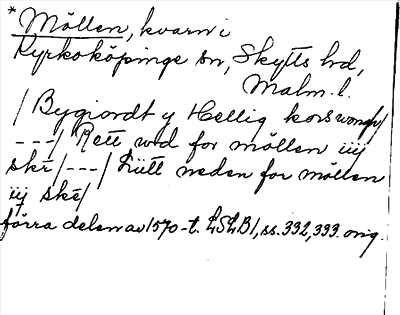 *Möllen, kvarn i
Kyrkoköpinge sn, Skytts hd,
Malm. l.
/Bygiordt y Hellig korswongh/
---/ Rett wed for möllen iij
skr̄/---/ Liitt neden for möllen
iij skē/
förra delen av 1570-t. LSLB1, ss. 332, 333. orig.